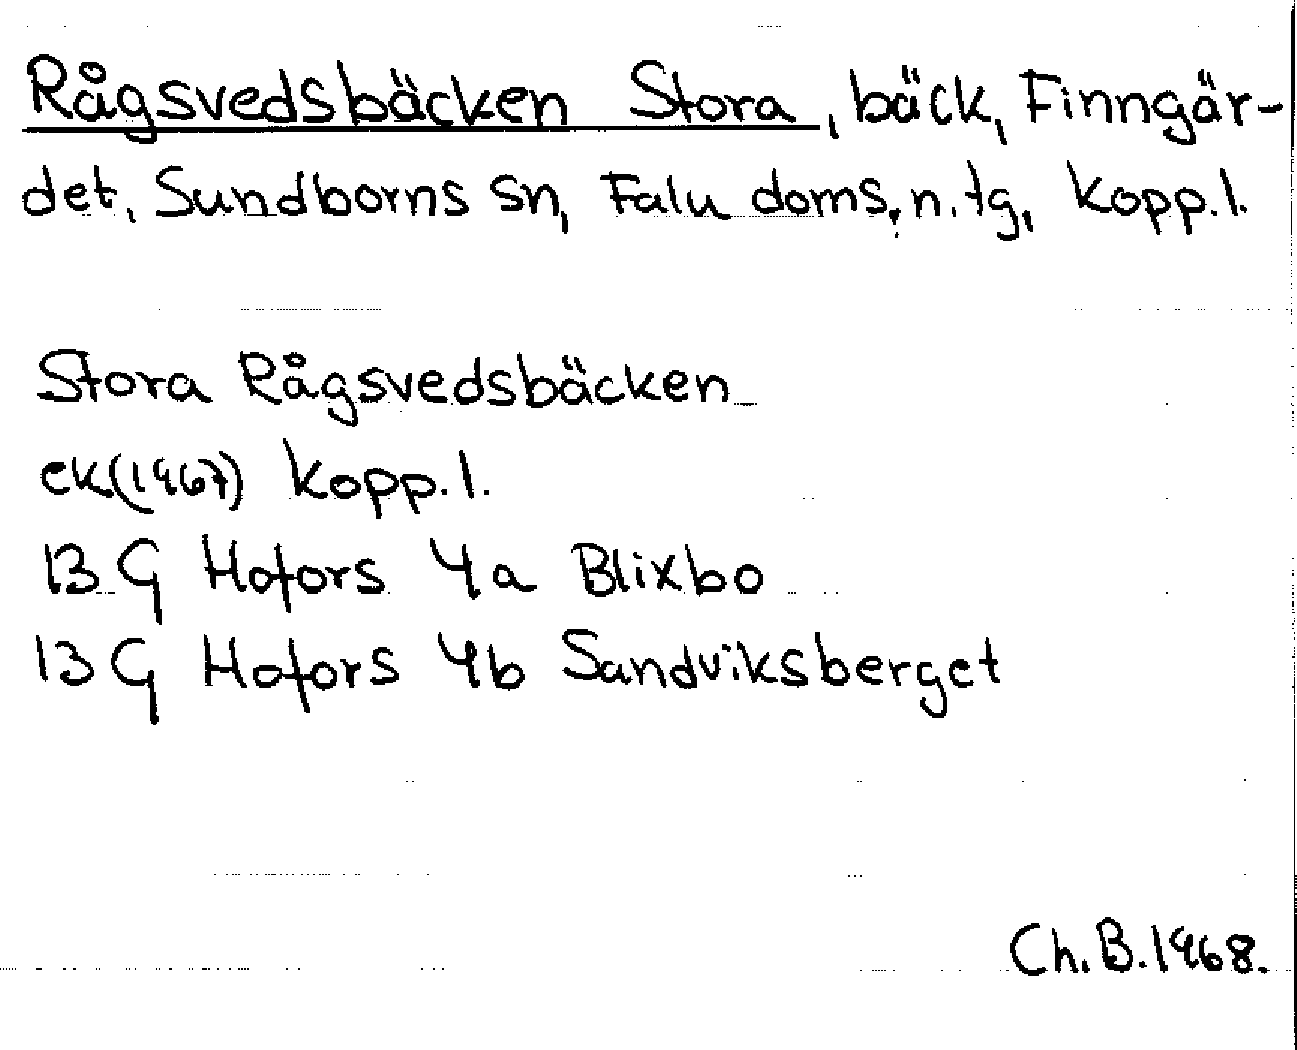 Rågsvedsbäcken Stora, bäck, Finngär-
det, Sundborns sn, Falu doms. n. tg, Kopp. l.
Stora Rågsvedsbäcken
ek(1967) Kopp. l.
13 G Hofors 4a Blixbo
13 G Hofors 4b Sandviksberget
Ch. B. 1968.